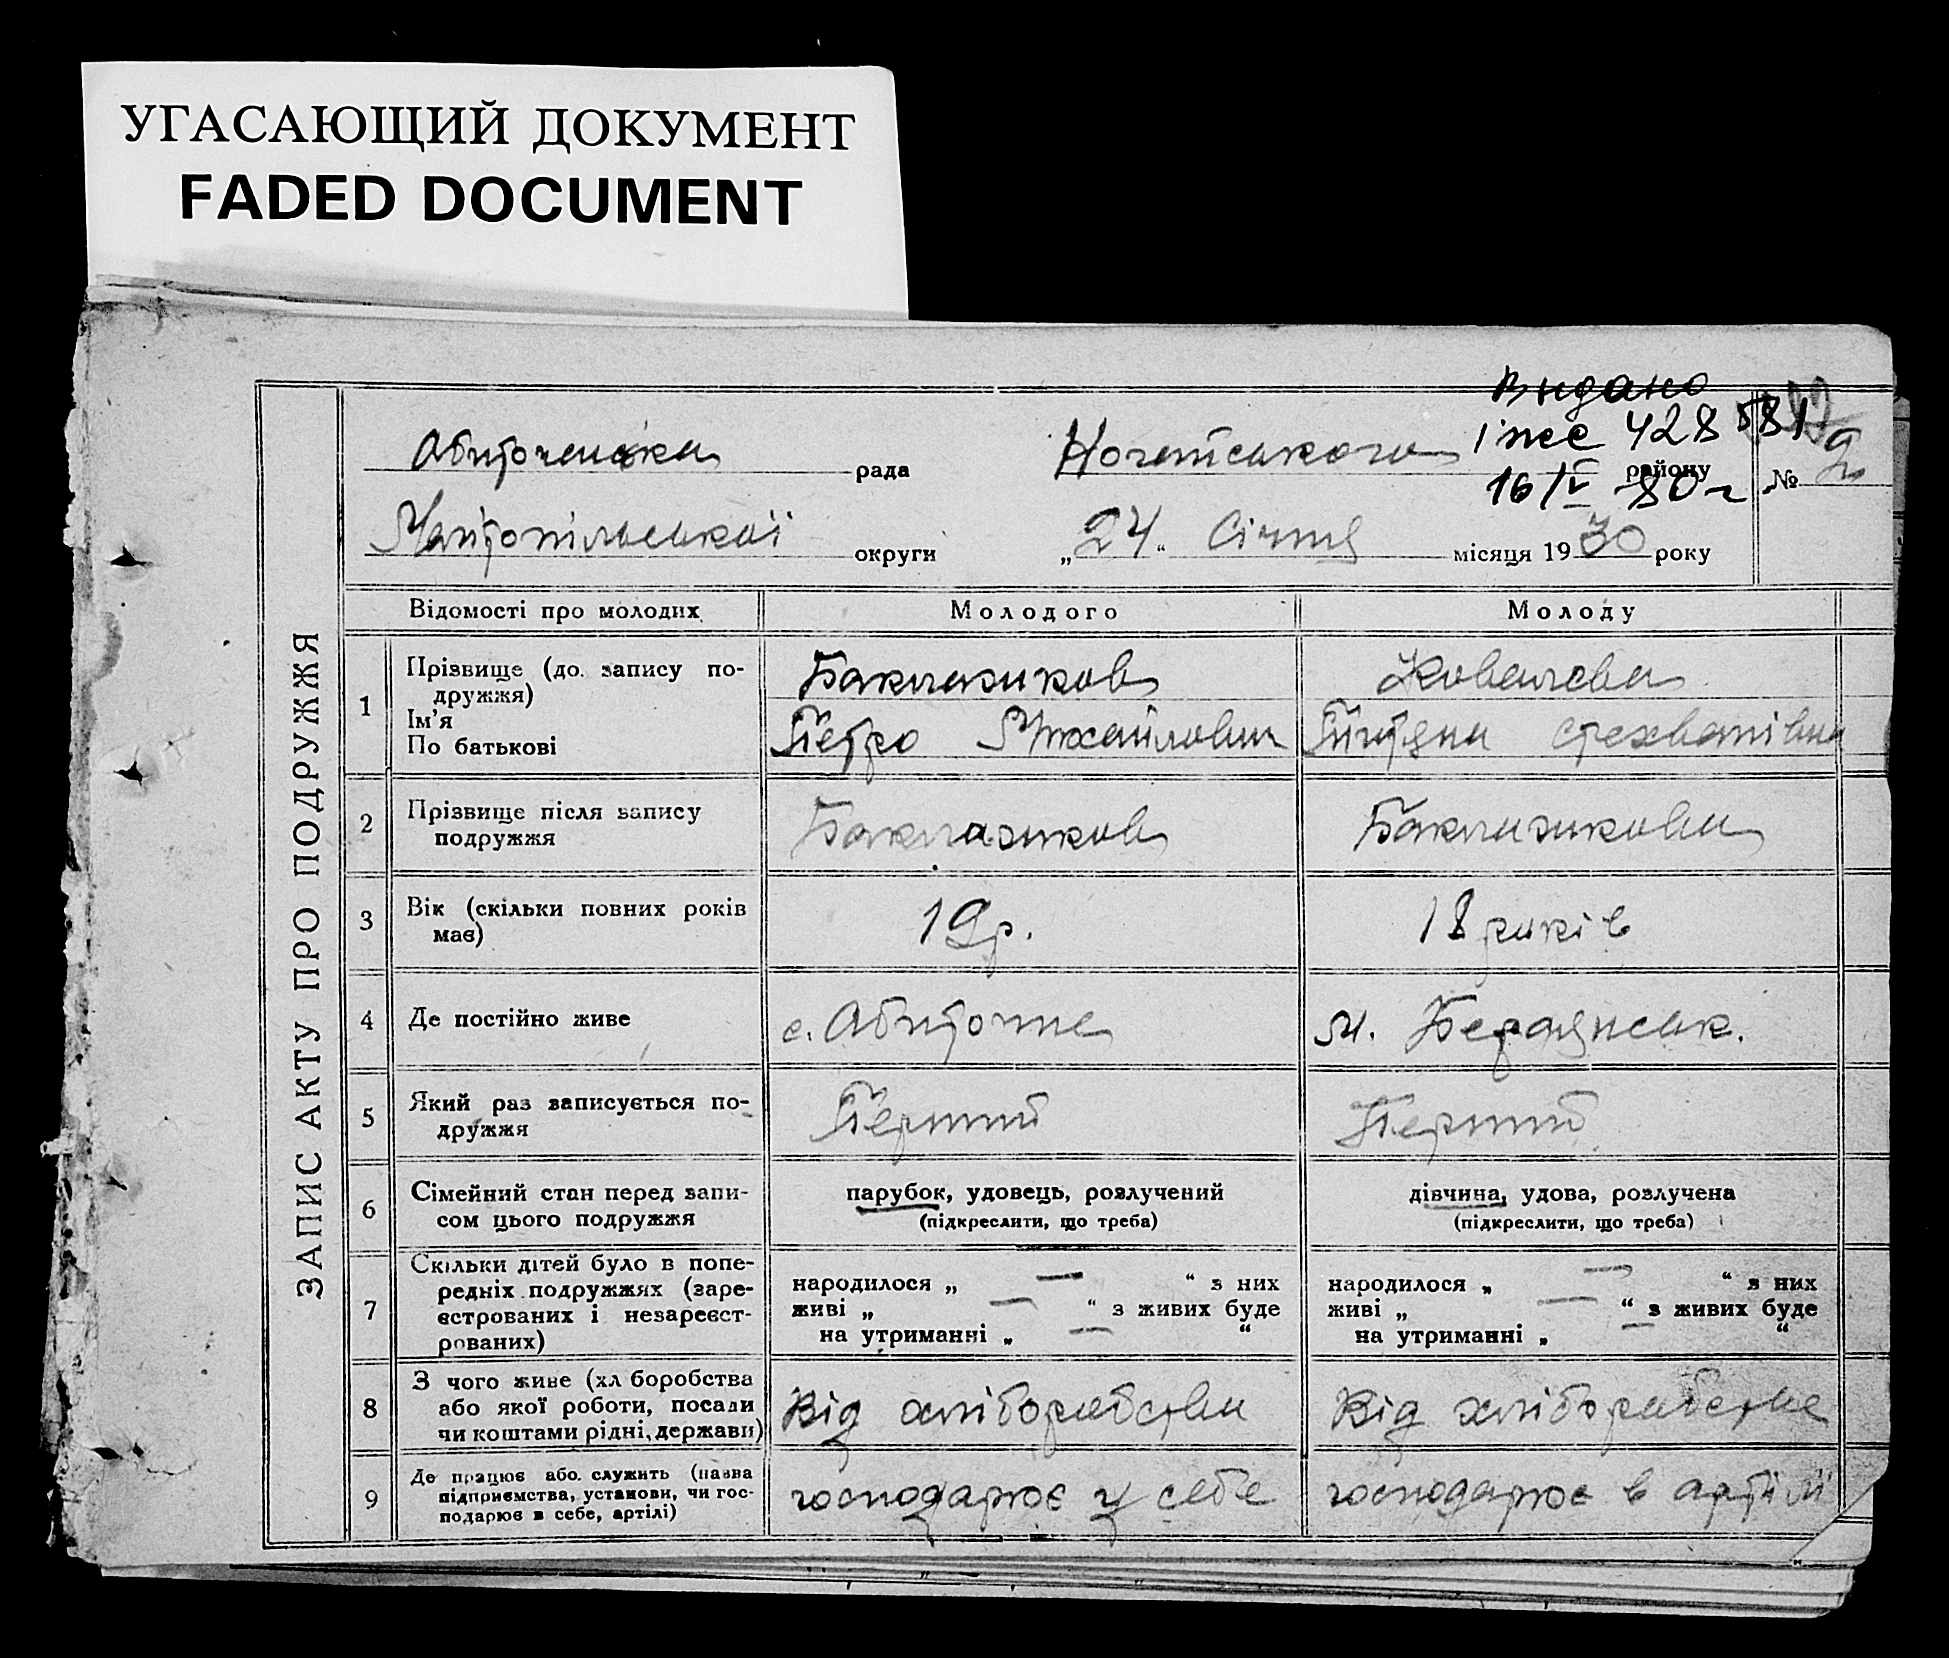 УГАСАЮЩИЙ ДОКУМЕНТ
FADED DOCUMENT
Видано
428581
16/IV 80 г.
рада
району
№ 2
округи
„24“ Січня місяця 1930 року
ЗАПИС АКТУ ПРО ПОДРУЖЖЯ
Відомості про молодих
Молодого
Молоду
1
Прізвище (до запису по-
дружжя)
Ім'я
По батькові
Баклажков
Петро Михайлович
Ковальова
2
Прізвище після запису
подружжя
Баклажков
Баклажкова
3
Вік (скільки повних років
має)
19 р.
18 років
4
Де постійно живе
с. Обиточне
м. Бердянськ.
5
Який раз записується по-
дружжя
Перший
Перший
6
Сімейний стан перед запи-
сом цього подружжя
парубок, удовець, розлучений
(підкреслити, що треба)
дівчина, удова, розлучена
(підкреслити, що треба)
7
Скільки дітей було в попе-
редніх подружжях (заре-
єстрованих і незареєст-
рованих)
народилося „ — “ з них
живі „ — “ з живих буде
на утриманні „ — “
народилося „ — “ з них
живі „ — “ з живих буде
на утриманні „ — “
8
З чого живе (хліборобства
або якої роботи, посади
чи коштами рідні, держави)
Від хліборобства
Від хліборобства
9
Де працює або служить (назва
підприємства, установи, чи гос-
подарює в себе, артілі)
господарює у себе
господарює в артілі